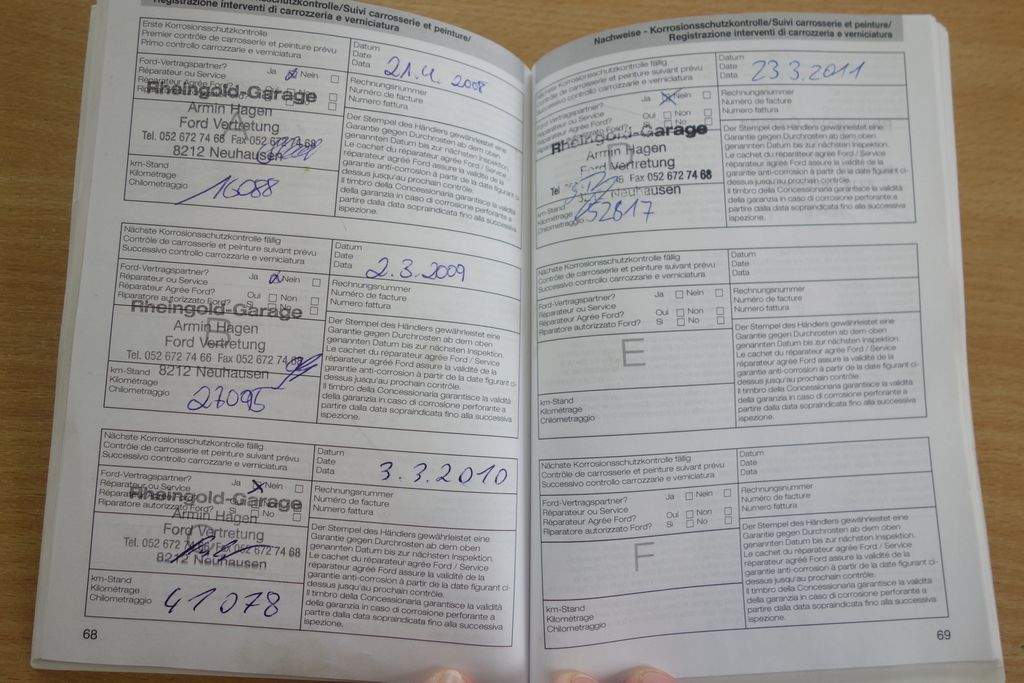 Suivi carrosserie et peinture/
Registrazione interventi di carrozzeria e verniciatura
Erste Korrosionsschutzkontrolle
Premier contrôle de carrosserie et peinture prévu
Primo controllo carrozzarie e verniciatura
Datum
Date
Data 21.4. 2008
Ford-Vertragspartner? Ja Nein
Réparateur ou Service
Réparateur Agrée Ford?
Rheingold-Garage
Armin Hagen
Ford Vertretung
Tel. 052 672 74 66 Fax 052 672
8212 Neuhausen
Rechnungsnummer
Numéro de facture
Numero fattura
A
km-Stand
Kilométrage
Chilometraggio 16088
Der Stempel des Händlers gewährleistet eine
Garantie gegen Durchrosten ab dem oben
genannten Datum bis zur nächsten Inspektion.
Le cachet du réparateur agrée Ford / Service
réparateur agrée Ford assure la validité de la
garantie anti-corrosion à partir de la date figurant ci-
dessus jusqu'au prochain contrôle.
Il timbro della Concessionaria garantisce la validità
della garanzia in caso di corrosione perforante a
partire dalla data sopraindicata fino alla successiva
ispezione.
Nächste Korrosionsschutzkontrolle fällig
Contrôle de carrosserie et peinture suivant prévu
Successivo controllo carrozzarie e verniciatura
Datum
Date
Data 2.3.2009
Ford-Vertragspartner? Ja Nein
Réparateur ou Service
Réparateur Agrée Ford? Oui Non
Riparatore autorizzato Ford? Si No
Rheingold-Garage
Armin Hagen
Ford Vertretung
Tel. 052 672 74 66 Fax 052 672 74 68
8212 Neuhausen
Rechnungsnummer
Numéro de facture
Numero fattura
B
km-Stand
Kilométrage
Chilometraggio 27095
Der Stempel des Händlers gewährleistet eine
Garantie gegen Durchrosten ab dem oben
genannten Datum bis zur nächsten Inspektion.
Le cachet du réparateur agrée Ford / Service
réparateur agrée Ford assure la validité de la
garantie anti-corrosion à partir de la date figurant ci-
dessus jusqu'au prochain contrôle.
Il timbro della Concessionaria garantisce la validità
della garanzia in caso di corrosione perforante a
partire dalla data sopraindicata fino alla successiva
ispezione.
Nächste Korrosionsschutzkontrolle fällig
Contrôle de carrosserie et peinture suivant prévu
Successivo controllo carrozzarie e verniciatura
Datum
Date
Data 3.3.2010
Ford-Vertragspartner? Ja Nein
Réparateur ou Service
Riparatore autorizzato Ford? Si No
Rheingold-Garage
Armin Hagen
Ford Vertretung
Tel. 052 672 74 66 Fax 052 672 74 68
8212 Neuhausen
Rechnungsnummer
Numéro de facture
Numero fattura
km-Stand
Kilométrage
Chilometraggio 41078
Der Stempel des Händlers gewährleistet eine
Garantie gegen Durchrosten ab dem oben
genannten Datum bis zur nächsten Inspektion.
Le cachet du réparateur agrée Ford / Service
réparateur agrée Ford assure la validité de la
garantie anti-corrosion à partir de la date figurant ci-
dessus jusqu'au prochain contrôle.
Il timbro della Concessionaria garantisce la validità
della garanzia in caso di corrosione perforante a
partire dalla data sopraindicata fino alla successiva
ispezione.
68
Nachweise - Korrosionsschutzkontrolle/Suivi carrosserie et peinture/
Registrazione interventi di carrozzeria e verniciatura
Nächste Korrosionsschutzkontrolle fällig
Contrôle de carrosserie et peinture suivant prévu
Successivo controllo carrozzarie e verniciatura
Datum
Date
Data 23.3.2011
Ford-Vertragspartner? Ja Nein
Réparateur ou Service
Réparateur Agrée Ford? Oui Non
Si No
Rheingold-Garage
Armin Hagen
Ford Vertretung
Tel Fax 052 672 74 68
Neuhausen
Rechnungsnummer
Numéro de facture
Numero fattura
km-Stand
Kilométrage
Chilometraggio 52817
Der Stempel des Händlers gewährleistet eine
Garantie gegen Durchrosten ab dem oben
genannten Datum bis zur nächsten Inspektion.
Le cachet du réparateur agrée Ford / Service
réparateur agrée Ford assure la validité de la
garantie anti-corrosion à partir de la date figurant ci-
dessus jusqu'au prochain contrôle.
Il timbro della Concessionaria garantisce la validità
della garanzia in caso di corrosione perforante a
partire dalla data sopraindicata fino alla successiva
ispezione.
Nächste Korrosionsschutzkontrolle fällig
Contrôle de carrosserie et peinture suivant prévu
Successivo controllo carrozzarie e verniciatura
Datum
Date
Data
Ford-Vertragspartner? Ja Nein
Réparateur ou Service
Réparateur Agrée Ford? Oui Non
Riparatore autorizzato Ford? Si No
Rechnungsnummer
Numéro de facture
Numero fattura
E
km-Stand
Kilométrage
Chilometraggio
Der Stempel des Händlers gewährleistet eine
Garantie gegen Durchrosten ab dem oben
genannten Datum bis zur nächsten Inspektion.
Le cachet du réparateur agrée Ford / Service
réparateur agrée Ford assure la validité de la
garantie anti-corrosion à partir de la date figurant ci-
dessus jusqu'au prochain contrôle.
Il timbro della Concessionaria garantisce la validità
della garanzia in caso di corrosione perforante a
partire dalla data sopraindicata fino alla successiva
ispezione.
Nächste Korrosionsschutzkontrolle fällig
Contrôle de carrosserie et peinture suivant prévu
Successivo controllo carrozzarie e verniciatura
Datum
Date
Data
Ford-Vertragspartner? Ja Nein
Réparateur ou Service
Réparateur Agrée Ford? Oui Non
Riparatore autorizzato Ford? Si No
Rechnungsnummer
Numéro de facture
Numero fattura
F
km-Stand
Kilométrage
Chilometraggio
Der Stempel des Händlers gewährleistet eine
Garantie gegen Durchrosten ab dem oben
genannten Datum bis zur nächsten Inspektion.
Le cachet du réparateur agrée Ford / Service
réparateur agrée Ford assure la validité de la
garantie anti-corrosion à partir de la date figurant ci-
dessus jusqu'au prochain contrôle.
Il timbro della Concessionaria garantisce la validità
della garanzia in caso di corrosione perforante a
partire dalla data sopraindicata fino alla successiva
ispezione.
69